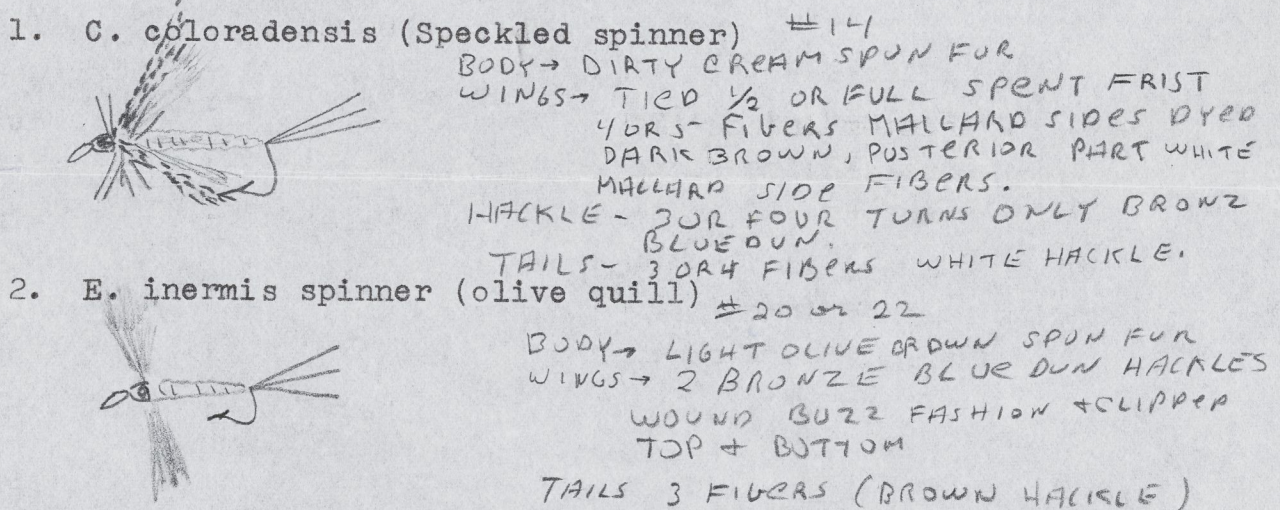 1. C. coloradensis (Speckled spinner) #14
BODY→ DIRTY CREAM SPUN FUR
WINGS→ TIED 1/2 OR FULL SPENT FRIST
4 OR 5- FIBERS MALLARD SIDES DYED
DARK BROWN, POSTERIOR PART WHITE
MALLARD SIDE FIBERS.
HACKLE - 3 OR FOUR TURNS ONLY BRONZ
BLUE DUN.
TAILS - 3 OR 4 FIBERS WHITE HACKLE.
2. E. inermis spinner (olive quill) #20 or 22
BODY→ LIGHT OLIVE BROWN SPUN FUR
WINGS→ 2 BRONZE BLUE DUN HACKLES
WOUND BUZZ FASHION + CLIPPED
TOP + BOTTOM
TAILS 3 FIBERS (BROWN HACKLE)